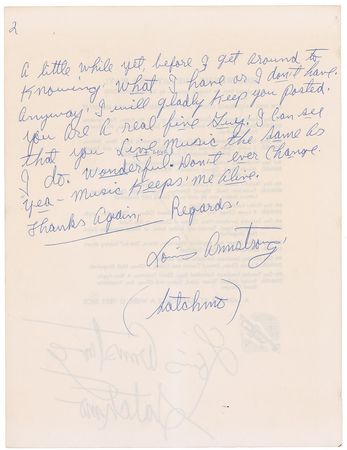 2
A little while yet, before I get around to
Knowing' What I have or I don't have.
Anyway' I will gladly Keep you posted.
you are A real fine Guy! I can see
that you Live Music the same as
I do. Wonderful. Don't ever Change.
Yea – Music Keeps' me Alive.
Thanks Again, Regards.
Louis Armstrong'
(Satchmo)